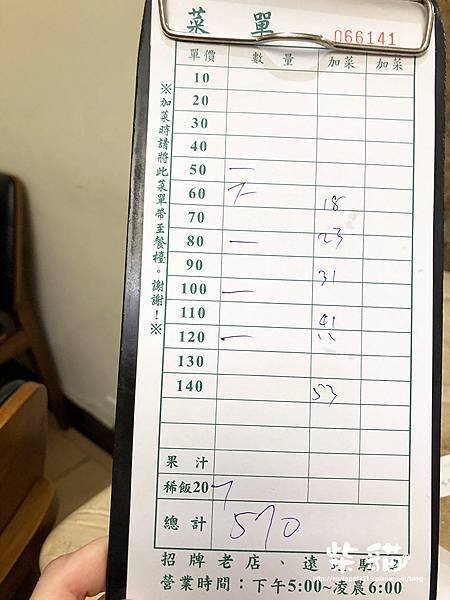 菜 單
066141
單價 數量 加菜 加菜
10
20
30
40
50 一
60
70 18
80 一 23
90 31
100 一
110 41
120 一
130
140 53
果汁
稀飯20
總計 570
※加菜時請將此菜單帶至餐檯。謝謝！※
招牌老店、遠
營業時間：下午5:00~淩晨6:00
柴貓